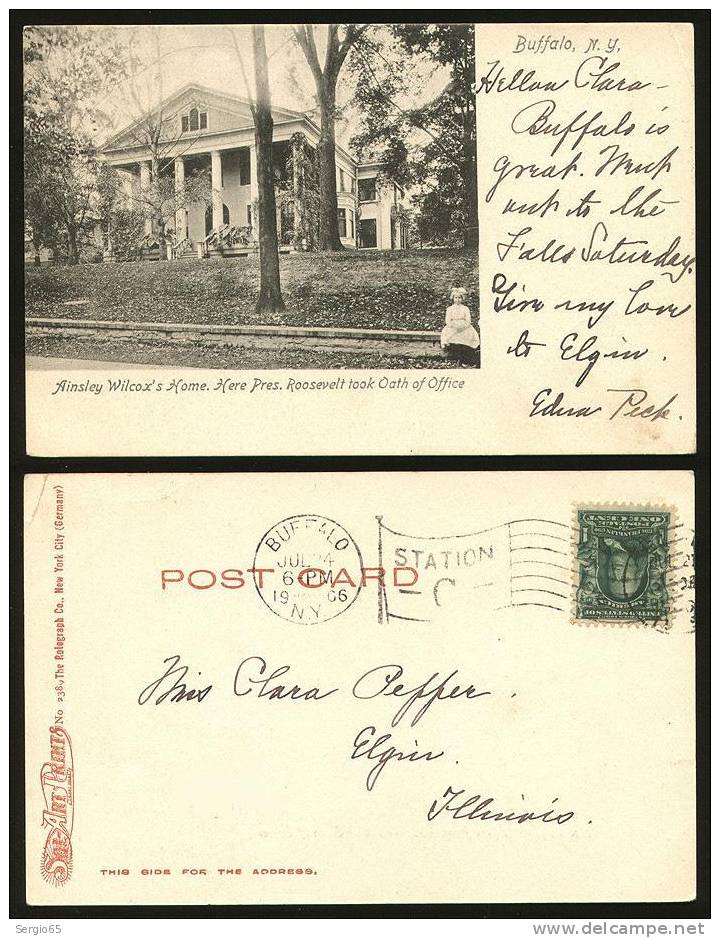 Buffalo, N.Y,
Helloa Clara –
Buffalo is
great. Went
out to the
Falls Saturday.
Give my love
to Elgin.
Edna Peck.
Ainsley Wilcox's Home. Here Pres. Roosevelt took Oath of Office
BUFFALO
JUL 24
6 PM
1906
N.Y.
STATION
- C -
POST CARD
Miss Clara Pepper.
Elgin.
Illinois.
THIS SIDE FOR THE ADDRESS.
The Rotograph Co., New York City (Germany)
Sol Art Prints
ONE CENT
POSTAGE
1
SERIES 1902
UNITED STATES OF
Sergio65
www.delcampe.net